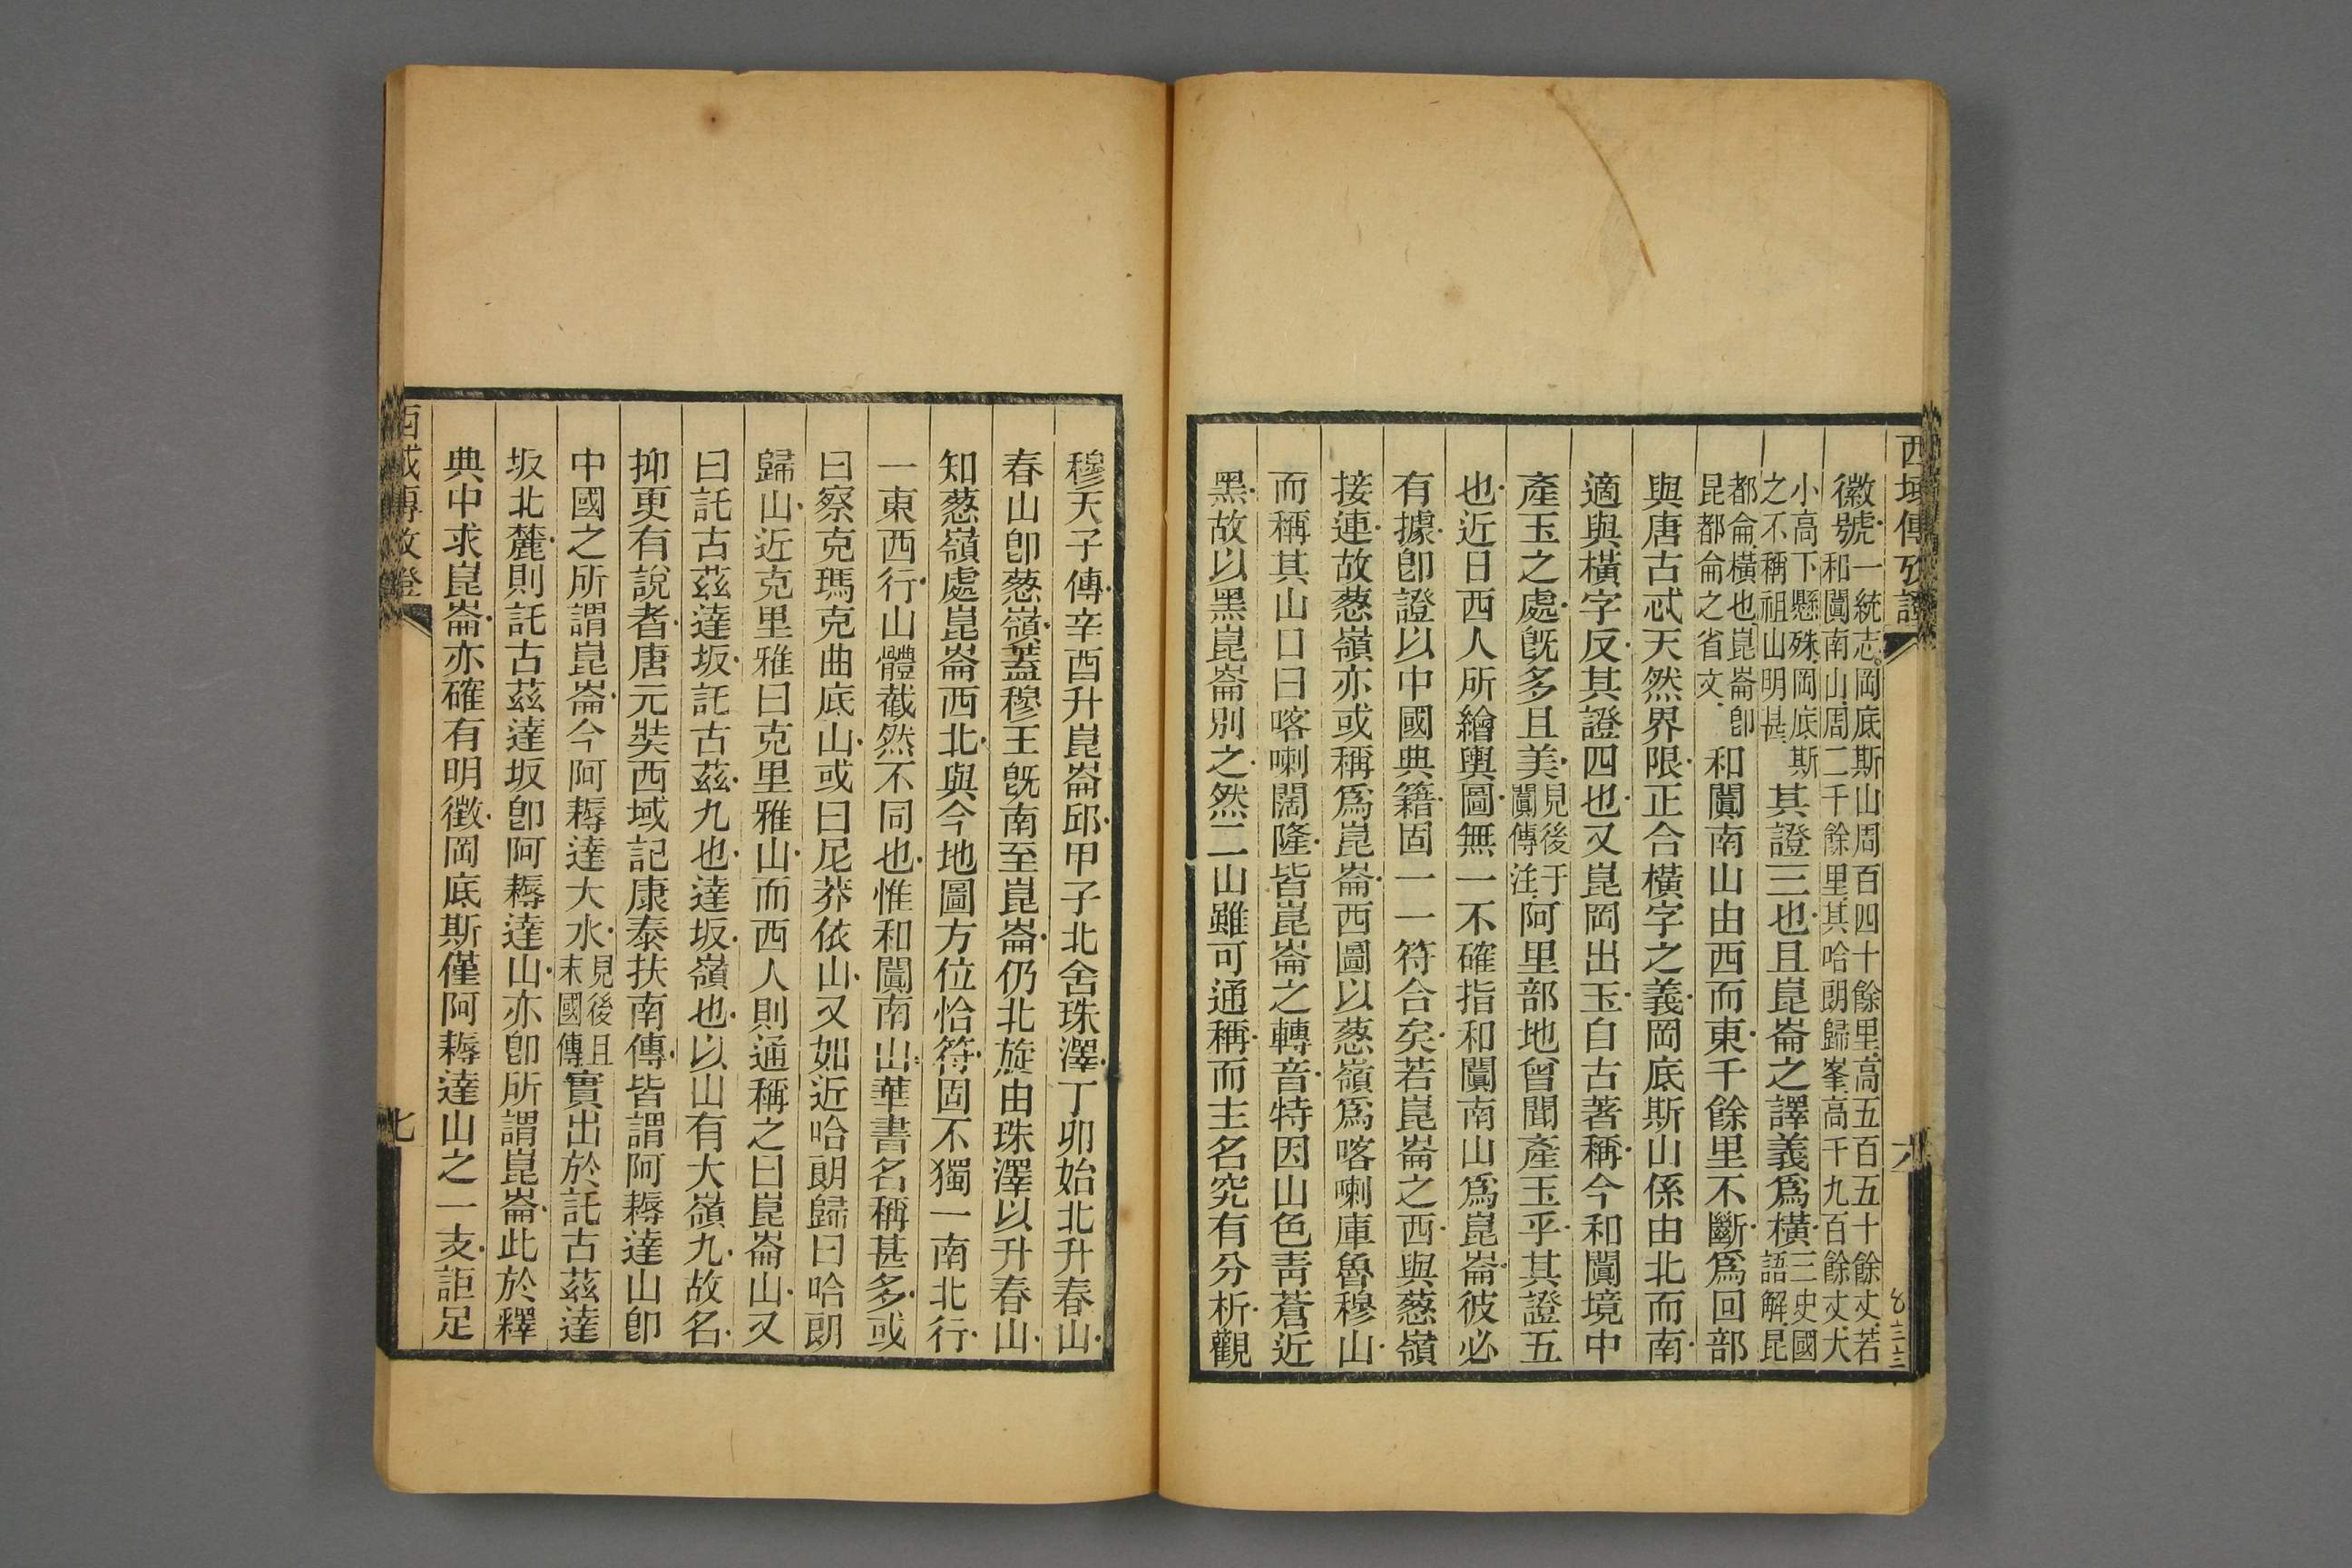 西域傳攷證
六
徽號一統志岡底斯山周百四十餘里高五百五十餘丈若
和闐南山周二千餘里其哈朗歸峯高千九百餘丈大
小高下懸殊岡底斯
之不稱祖山明甚其證三也且崑崙之譯義爲橫三史國
語解昆
都侖橫也崑崙卽
昆都侖之省文和闐南山由西而東千餘里不斷爲回部
與唐古忒天然界限正合橫字之義岡底斯山係由北而南
適與橫字反其證四也又崑岡出玉自古著稱今和闐境中
產玉之處旣多且美見後于
闐傳注阿里部地曾聞產玉乎其證五
也近日西人所繪輿圖無一不確指和闐南山爲崑崙彼必
有據卽證以中國典籍固一一符合矣若崑崙之西與葱嶺
接連故葱嶺亦或稱爲崑崙西圖以葱嶺爲喀喇庫魯穆山
而稱其山口曰喀喇闊隆皆崑崙之轉音特因山色靑蒼近
黑故以黑崑崙別之然二山雖可通稱而主名究有分析觀
穆天子傳辛酉升崑崙邱甲子北舍珠澤丁卯始北升春山
春山卽葱嶺葢穆王旣南至崑崙仍北旋由珠澤以升春山
知葱嶺處崑崙西北與今地圖方位恰符固不獨一南北行
一東西行山體截然不同也惟和闐南山華書名稱甚多或
曰察克瑪克曲底山或曰尼莽依山又如近哈朗歸曰哈朗
歸山近克里雅曰克里雅山而西人則通稱之曰崑崙山又
曰託古茲達坂託古茲九也達坂嶺也以山有大嶺九故名
抑更有說者唐元奘西域記康泰扶南傳皆謂阿耨達山卽
中國之所謂崑崙今阿耨達大水見後且
末國傳實出於託古茲達
坂北麓則託古茲達坂卽阿耨達山亦卽所謂崑崙此於釋
典中求崑崙亦確有明徵岡底斯僅阿耨達山之一支詎足
西域傳攷證
七